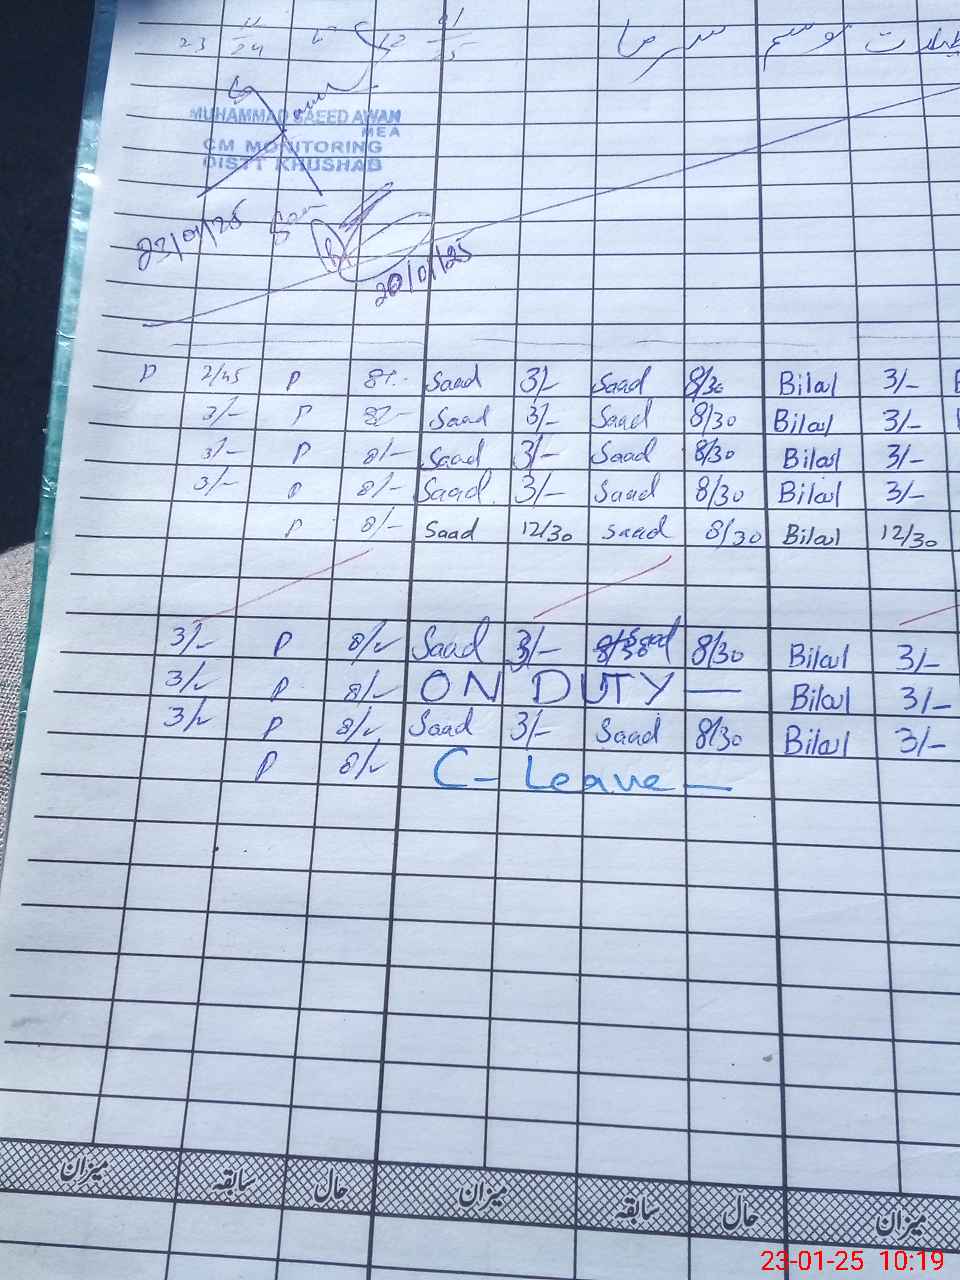 تعطیلات موسم سرما
MUHAMMAD SAEED AWAN
MEA
CM MONITORING
DISTT KHUSHAB
23/01/25
20/01/25
P 2/45 P 8/- Saad 3/- Saad 8/30 Bilal 3/-
3/- P 8/- Saad 3/- Saad 8/30 Bilal 3/-
3/- P 8/- Saad 3/- Saad 8/30 Bilal 3/-
3/- P 8/- Saad 3/- Saad 8/30 Bilal 3/-
P 8/- Saad 12/30 Saad 8/30 Bilal 12/30
3/- P 8/- Saad 3/- Saad 8/30 Bilal 3/-
3/- P 8/- ON DUTY — Bilal 3/-
3/- P 8/- Saad 3/- Saad 8/30 Bilal 3/-
P 8/- C- Leave —
میزان سابقہ حال میزان سابقہ حال میزان
23-01-25 10:19